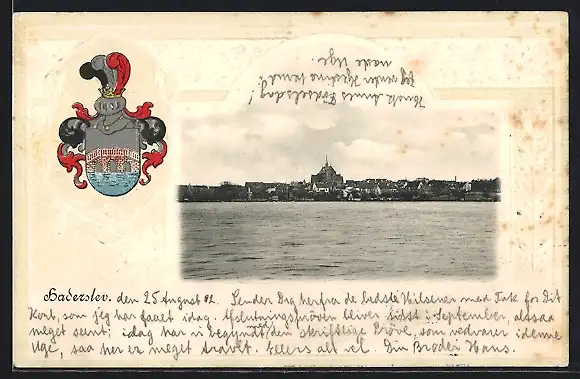 Husk Annes Fødselsdag!
næste Uge.
Haderslev. den 25 August 02. Sender Dig herfra de bedste Hilsener med Tak for Dit
Kort, som jeg har faaet idag. Afslutningsprøven bliver sidst i September, altsaa
meget sent; idag har vi begyndt den skriftlige Prøve, som vedvarer i denne
Uge, saa her er meget travlt. Ellers alt vel. Din Broder Hans.